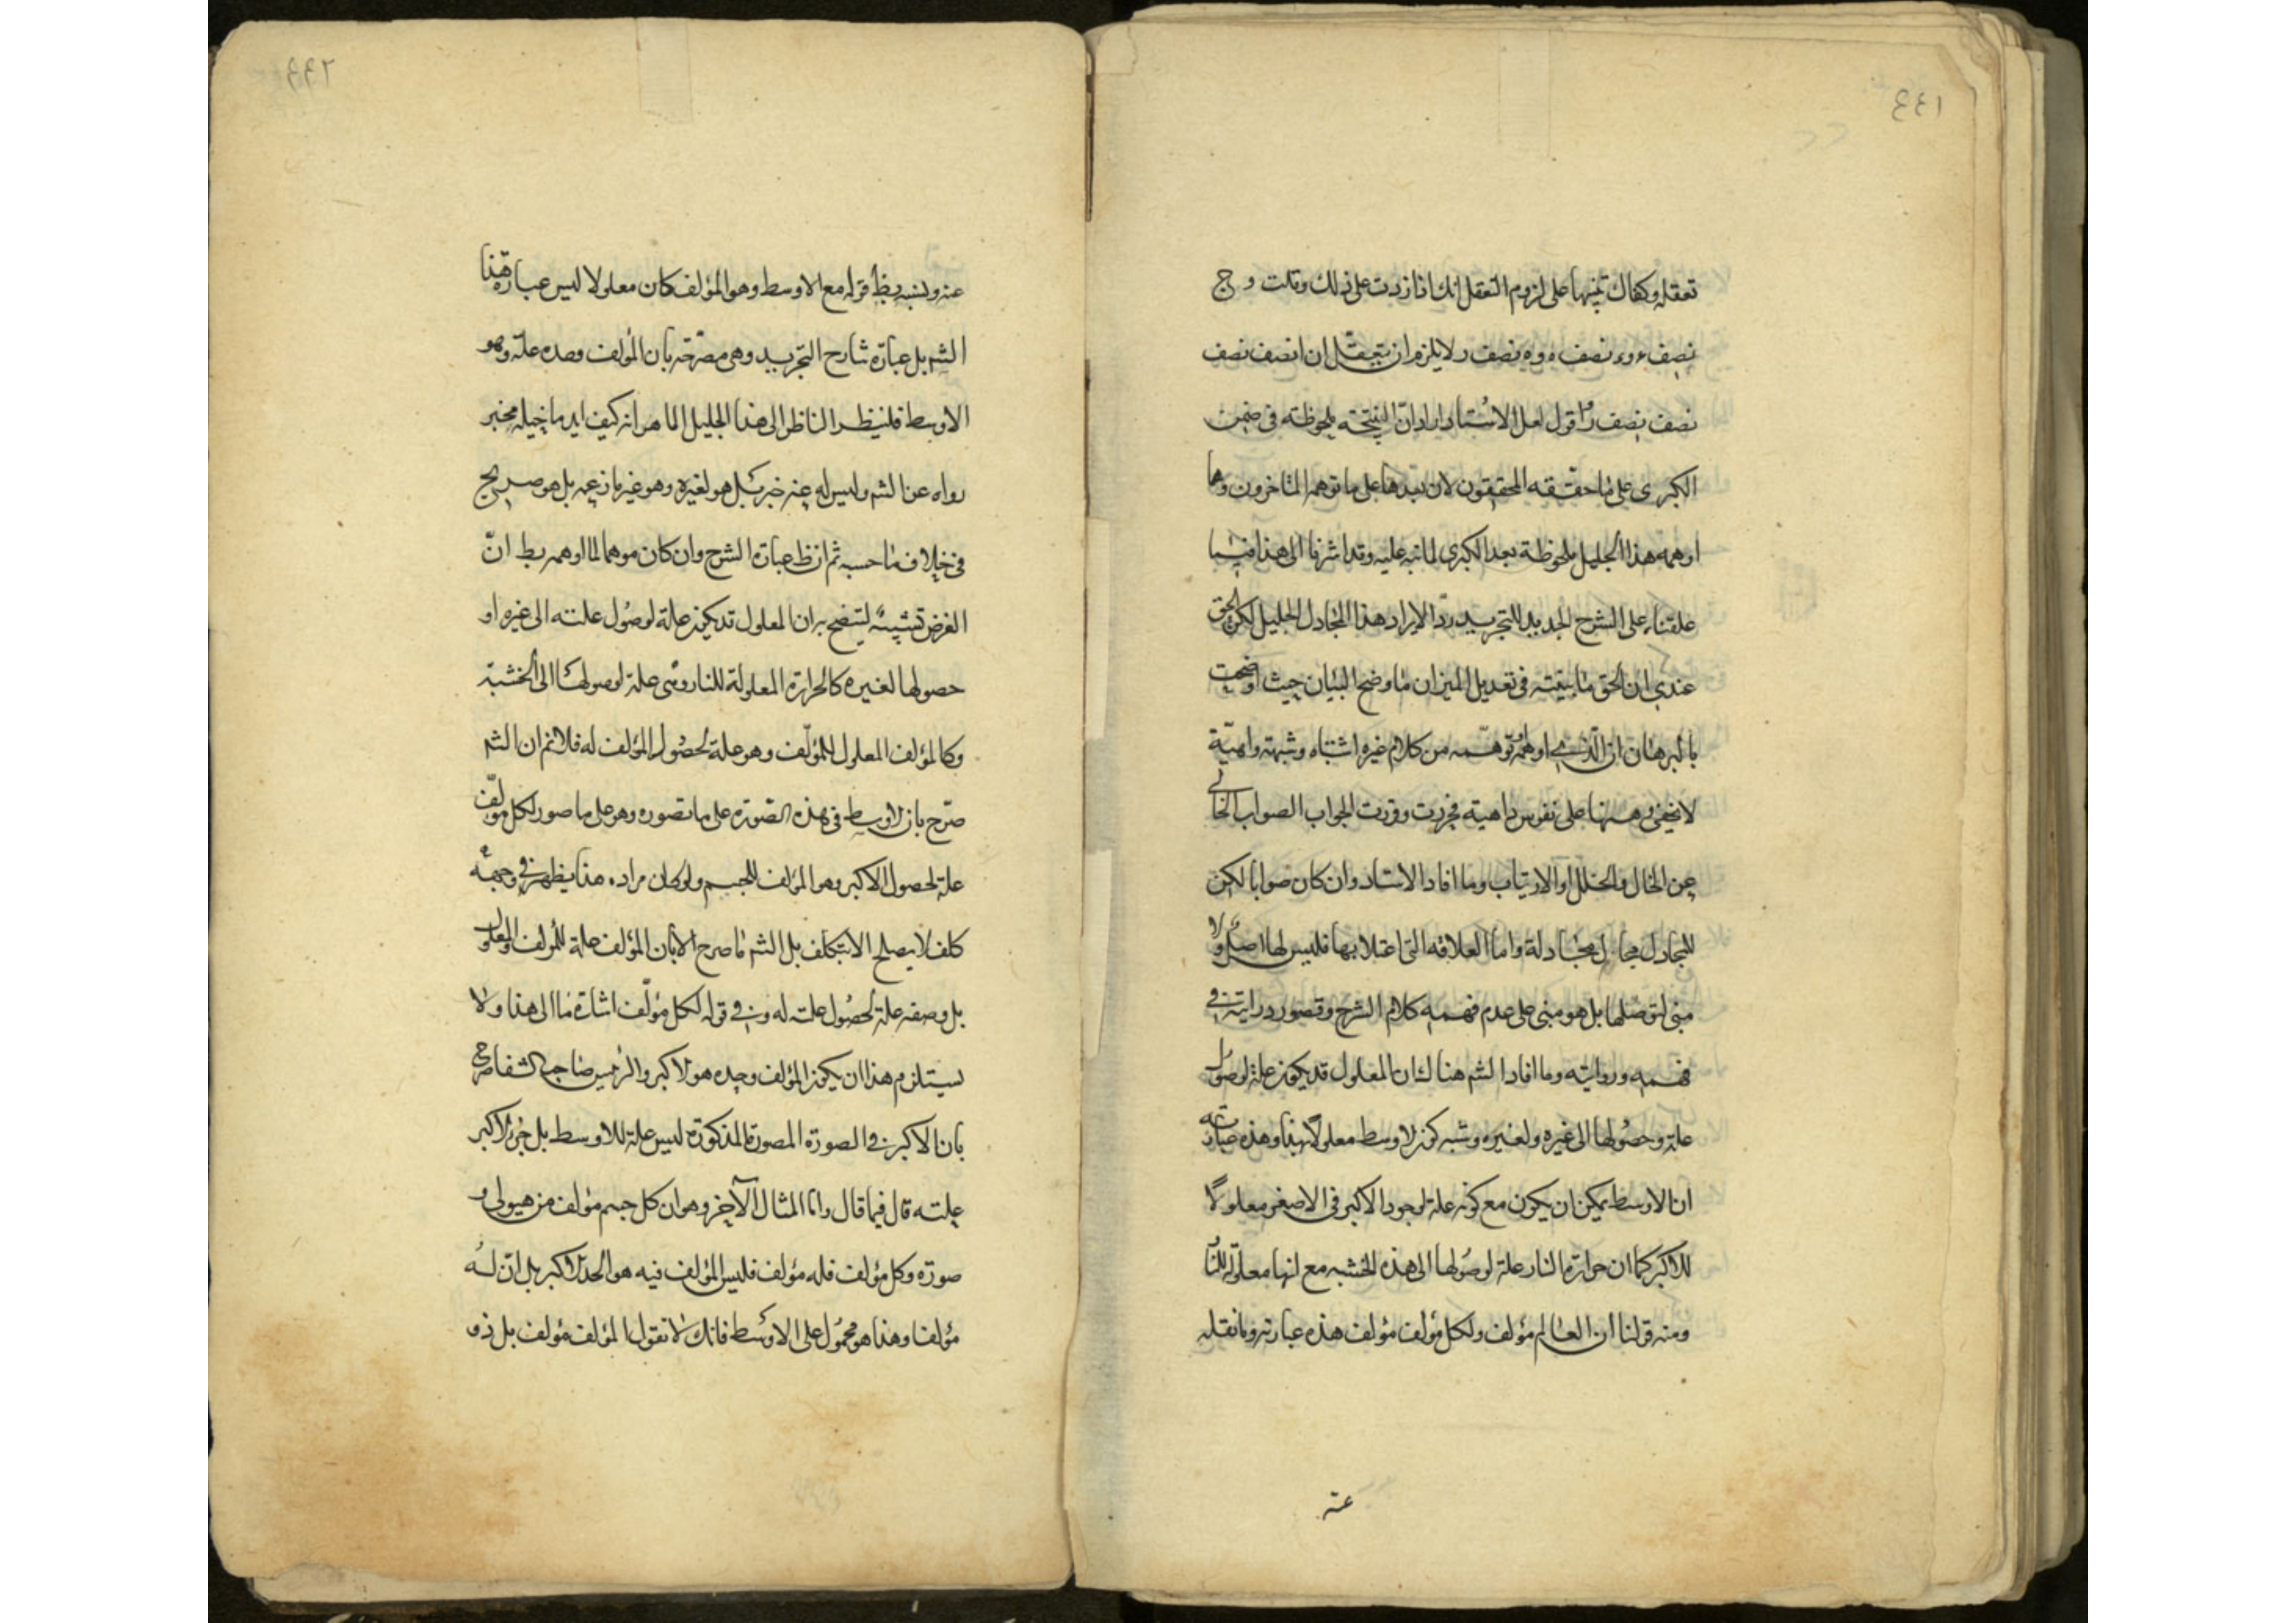 ٤٤١
تعقله وكفاك تنبيها على لزوم التعقل انك اذا زدت على ذلك وقلت و ج
نصف ء وء نصف ه وه نصف ر لا يلزم ان يتعقل ان ا نصف نصف
نصف نصف ر اقول لعل الاستاد اراد ان النتيجة ملحوظته في ضمن
الكبرى على ما حققه المحققون لان بعدها على ما توهمه المتاخرون وما
اوهمه هذا الجليل ملحوظة بعد الكبرى لما نبه عليه وقد اشرنا الى هذا فيما
علقناه على الشرح الجديد للتجريد ردّ الايراد هذا المجادل الجليل لكن الحق
عندي ان الحق ما بيّنته في تعديل الميزان ما وضح البيان حيث اوضحت
بالبرهان ان الّذي اوهمه توهّمه من كلام غيره اشتباه وشبهة واهيّة
لا يخفى وهنها على نفوس داهية فحررت وقررت الجواب الصواب الخالي
عن الخال والخلل او الارتياب وما افاد الاستاد وان كان صوابا لكن
للمجادل مجال مجادلة واما العلاقة التي اعتلا بها فليس لها اصل ولا
مبنى لتوصلها بل هو مبنى على عدم فهمه كلام الشرح وقصور درايته في
فهمه وروايته وما افاد الشم هناك ان المعلول قد يكون علة لوصول
علته وحصولها الى غيره ولغيره وشبه كون الاوسط معلولا بهذا وهذه عبارته
ان الاوسط يمكن ان يكون مع كونه علة لوجود الاكبر في الاصغر معلولًا
للاكبر كما ان حرارة النار علة لوصولها الى هذه الخشبه مع انها معلولة للنا
ومنه قولنا ان العالم مؤلف ولكل مؤلف مؤلف هذه عبارته وما نقله
عنه
٤٤٢
عنه ونسبه بظ قوله مع الاوسط وهو المؤلف كان معلولا ليس عبارة هنا
الشم بل عبارة شارح التجريد وهي مصرّحة بان المؤلف وحده علة وهو
الاوسط فلينظر الناظر الى هذا الجليل الماهر انه كيف ايد ما خيله بخبر
رواه عن الشم وليس له عنه خبر بل هو لغيره وهو غير ما زعمه بل هو صريح
في خلاف ما حسبه ثم ان ظ عبارة الشرح وان كان موهما لما اوهمه بط انّ
الغرض تشبيه ليتضح به ان المعلول قد يكون علة لوصول علته الى غيره او
حصولها لغيره كالحرارة المعلولة للنار وهي علة لوصولها الى الخشبة
وكالمؤلف المعلول للمؤلّف وهو علة لحصول المؤلف له فلا نم ان الشم
صرّح بان الاوسط في هذه الصّورة على ما تصوره وهو على ما صور لكل مؤلّف
علة لحصول الاكبر وهو المؤلف للجسم ولو كان مراده هذا يظهر في وجهه
كلف لا يصلح الا بتكلف بل الشم ما صرح الا بان المؤلف علة للمؤلف والمعلول
بل وصفه علة لحصول علته له وفي قوله لكل مؤلّف اشارة ما الى هذا ولا
يستلزم هذا ان يكون المؤلف وحده هو الاكبر والرئيس صاحب الشفا صرح
بان الاكبر في الصورة المصورة المذكورة ليس علة للاوسط بل جزء الاكبر
علته قال فيما قال واما المثال الآخر وهو ان كل جسم مؤلف من هيولى و
صورة وكل مؤلف فله مؤلف فليس المؤلف فيه هو الحد الاكبر بل انّ له
مؤلفا وهذا هو محمول على الاوسط فانك لا تقول المؤلف مؤلف بل ذو